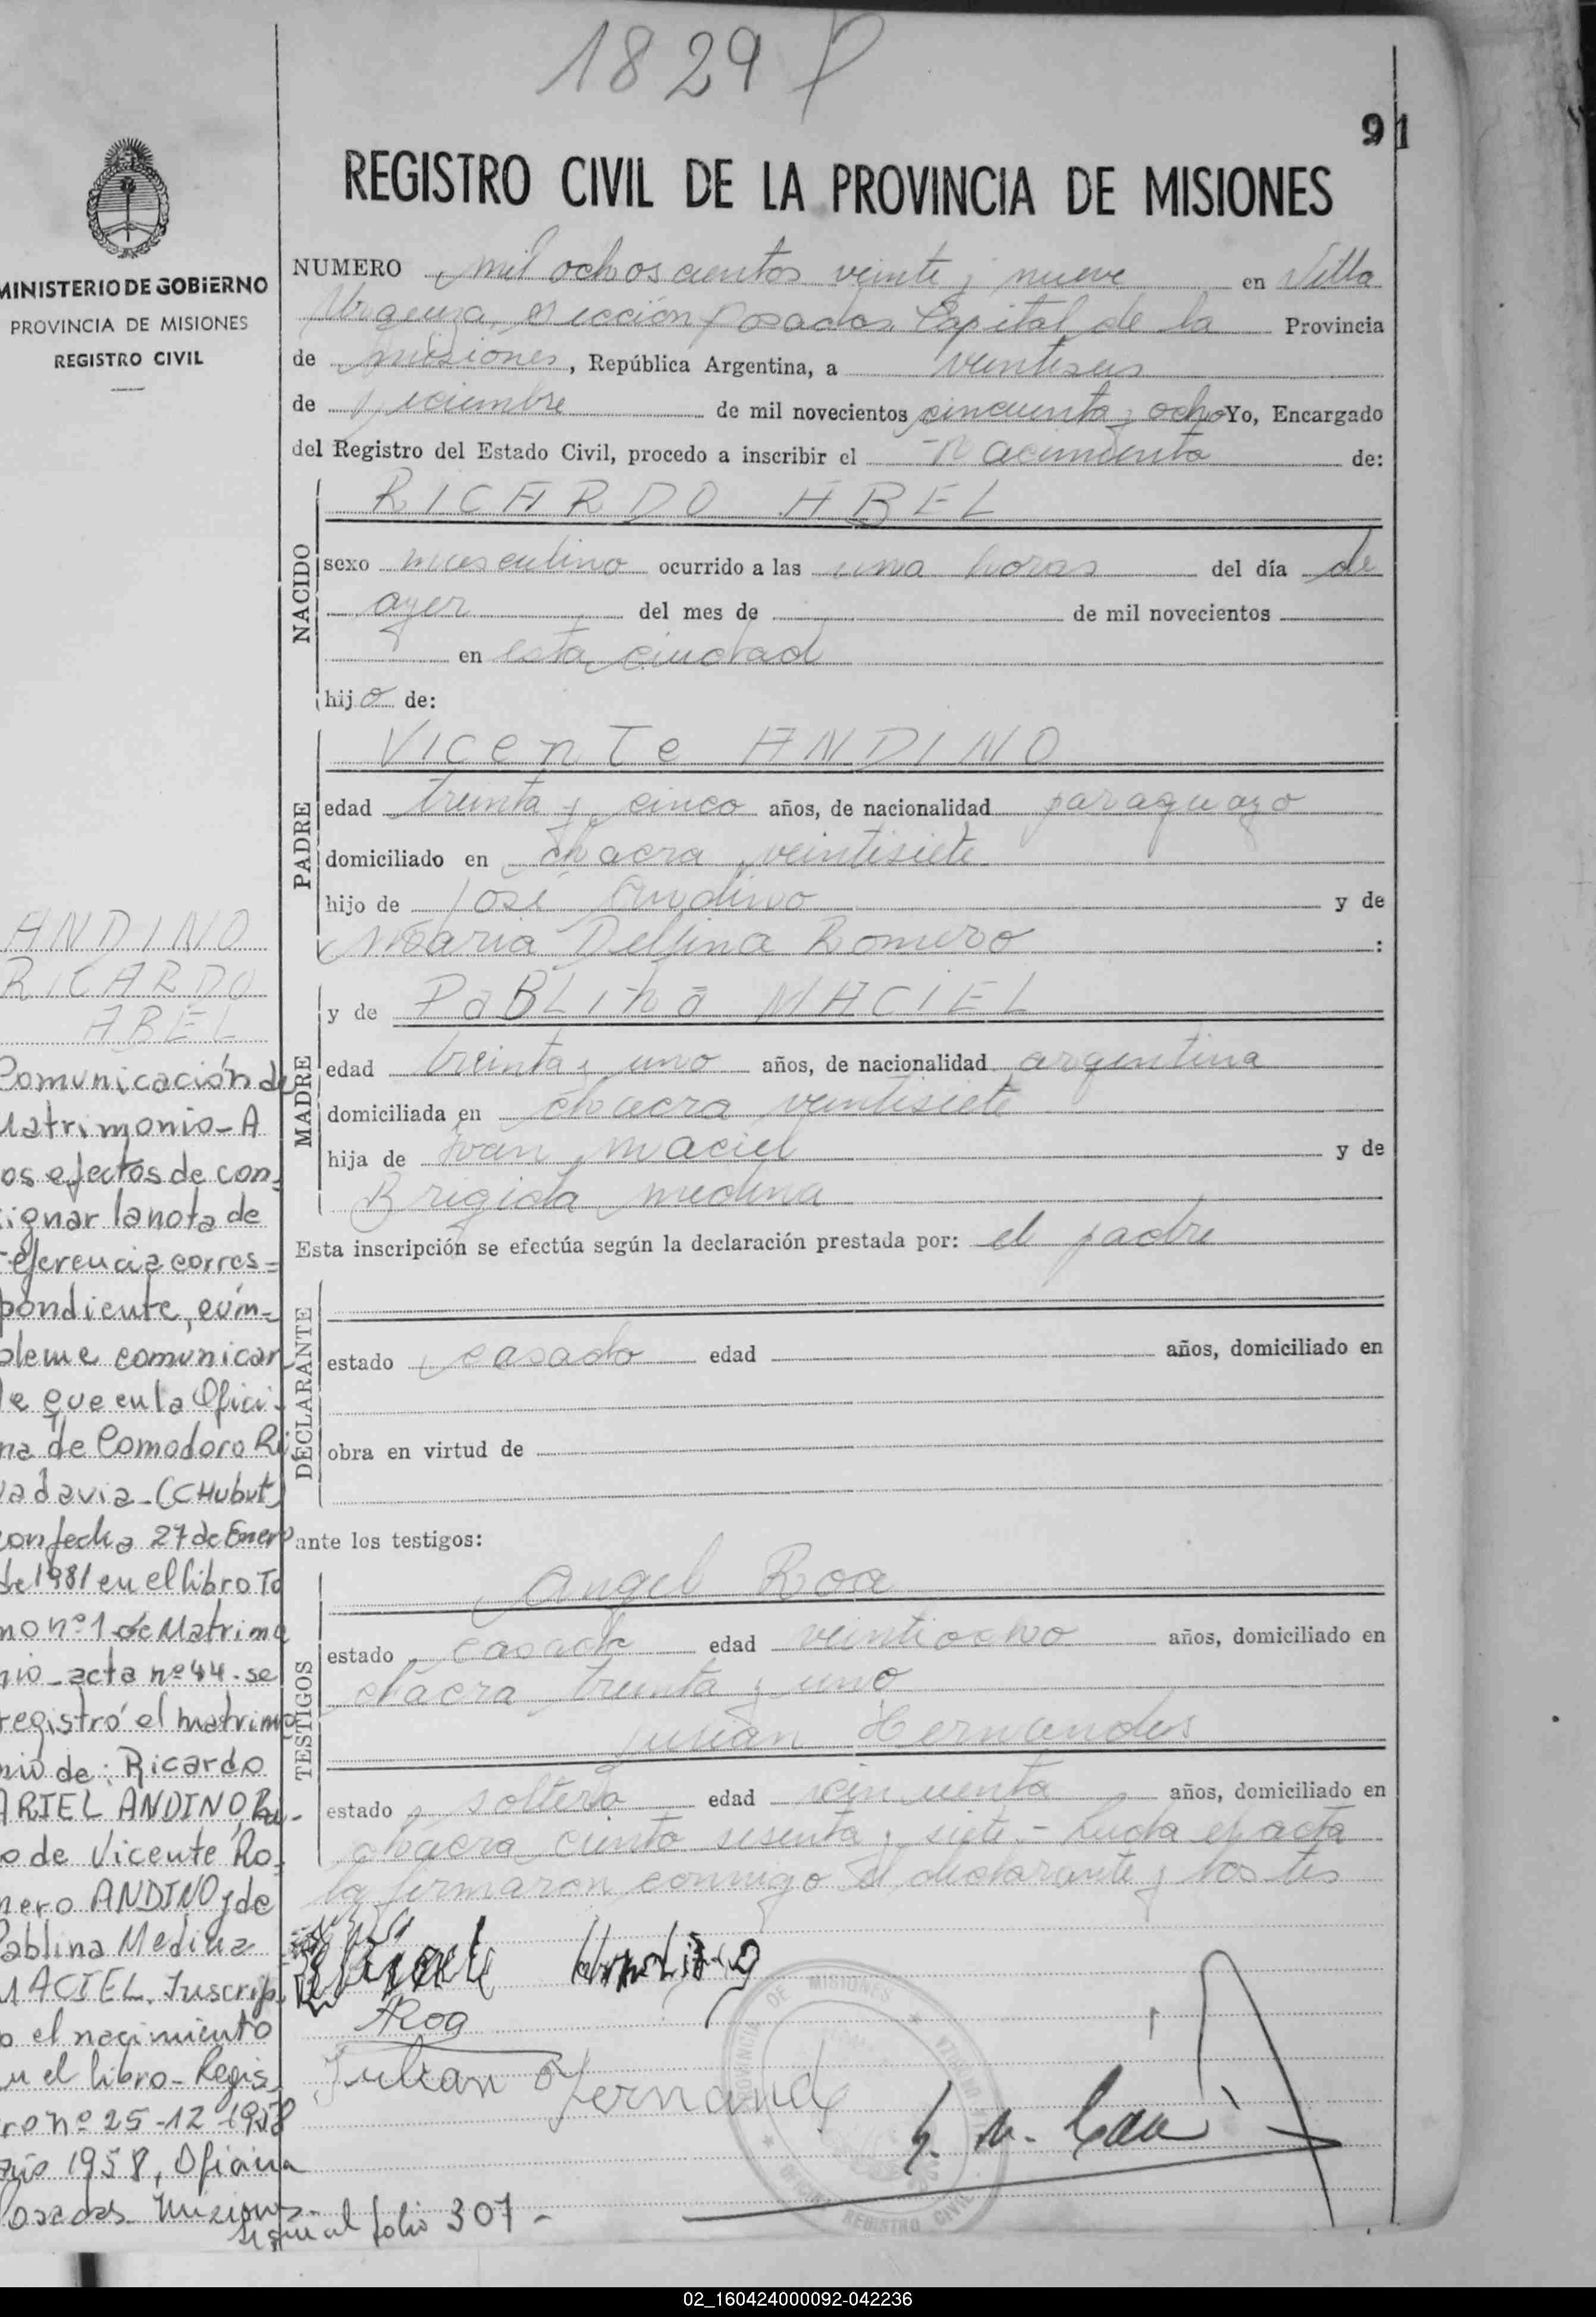 1829 P
91
REGISTRO CIVIL DE LA PROVINCIA DE MISIONES
MINISTERIO DE GOBIERNO
PROVINCIA DE MISIONES
REGISTRO CIVIL
NUMERO mil ochoscientos veinte y nueve en Villa
Urquiza, sección Posadas Capital de la Provincia
de misiones, República Argentina, a veintiseis
de Diciembre de mil novecientos cincuenta y ocho Yo, Encargado
del Registro del Estado Civil, procedo a inscribir el nacimiento de:
NACIDO
RICARDO ABEL
sexo masculino ocurrido a las una horas del día de
ayer del mes de de mil novecientos
en esta ciudad
hijo de:
PADRE
Vicente ANDINO
edad treinta y cinco años, de nacionalidad paraguayo
domiciliado en chacra veintisiete
hijo de José Andino y de
Maria Delfina Romero :
MADRE
y de PaBLina MACIEL
edad treinta y uno años, de nacionalidad argentina
domiciliada en chacra veintisiete
hija de Ivan maciel y de
Brigida medina
Esta inscripción se efectúa según la declaración prestada por: el padre
DECLARANTE
estado casado edad años, domiciliado en
obra en virtud de
ante los testigos:
TESTIGOS
Angel Roa
estado casado edad veintiocho años, domiciliado en
chacra treinta y uno
Julian Hernandes
estado soltero edad cincuenta años, domiciliado en
chacra ciento sesenta y siete.- Leida el acta
la firmaron conmigo el declarante y los tes
Andino
ARoa
Julian Hernande
PROVINCIA DE MISIONES
OFICINA REGISTRO CIVIL
ANDINO
RICARDO
ABEL
Comunicación de
Matrimonio- A
os efectos de con
signar la nota de
referencia corres=
pondiente, cúm=
pleme comunicar
le que en la Ofici-
na de Comodoro Ri
vadavia-(CHubut)
con fecha 27 de Enero
de 1981 en el libro To
mo nº 1 de Matrimo
nio- acta nº 44. se
registró el matrimo
nio de: Ricardo
ARIEL ANDINO, hi-
o de Vicente Ro
mero ANDINO y de
Pablina Medina
MACIEL. Inscrip
o el nacimiento
en el libro- Regis
ro nº 25-12-1958
año 1958, Oficina
Posadas Misiones-
sigue al folio 307-
02_160424000092-042236